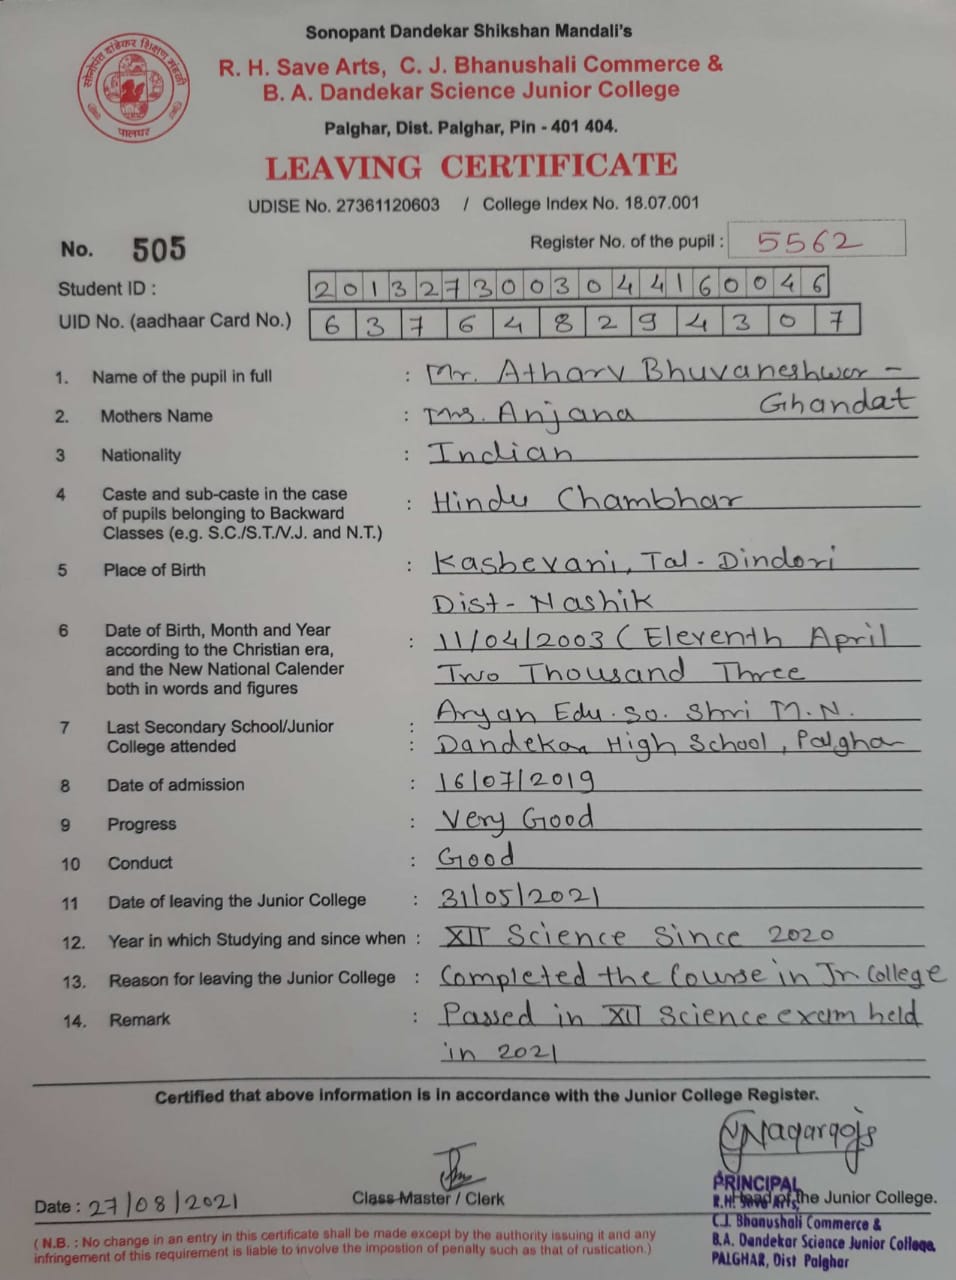 सोनोपंत दांडेकर शिक्षण मंडळी
पालघर
Sonopant Dandekar Shikshan Mandali's
R. H. Save Arts, C. J. Bhanushali Commerce &
B. A. Dandekar Science Junior College
Palghar, Dist. Palghar, Pin - 401 404.
LEAVING CERTIFICATE
UDISE No. 27361120603 / College Index No. 18.07.001
No. 505 Register No. of the pupil : 5562
Student ID : 2013273003044160046
UID No. (aadhaar Card No.) 637648294307
1. Name of the pupil in full : Mr. Atharv Bhuvaneshwar - Ghandat
2. Mothers Name : Mrs. Anjana
3 Nationality : Indian
4 Caste and sub-caste in the case : Hindu Chambhar
of pupils belonging to Backward
Classes (e.g. S.C./S.T./V.J. and N.T.)
5 Place of Birth : Kasbevani, Tal - Dindori
Dist - Nashik
6 Date of Birth, Month and Year : 11/04/2003 (Eleventh April
according to the Christian era,
and the New National Calender Two Thousand Three
both in words and figures
7 Last Secondary School/Junior : Aryan Edu. So. Shri M.N.
College attended : Dandekar High School, Palghar
8 Date of admission : 16/07/2019
9 Progress : Very Good
10 Conduct : Good
11 Date of leaving the Junior College : 31/05/2021
12. Year in which Studying and since when : XII Science Since 2020
13. Reason for leaving the Junior College : Completed the Course in Jr. College
14. Remark : Passed in XII Science exam held
in 2021
Certified that above information is in accordance with the Junior College Register.
Date : 27/08/2021 Class Master / Clerk Head of the Junior College.
PRINCIPAL
R.H. Save Arts,
C.J. Bhanushali Commerce &
B.A. Dandekar Science Junior College,
PALGHAR, Dist Palghar
( N.B. : No change in an entry in this certificate shall be made except by the authority issuing it and any
infringement of this requirement is liable to involve the impostion of penalty such as that of rustication.)